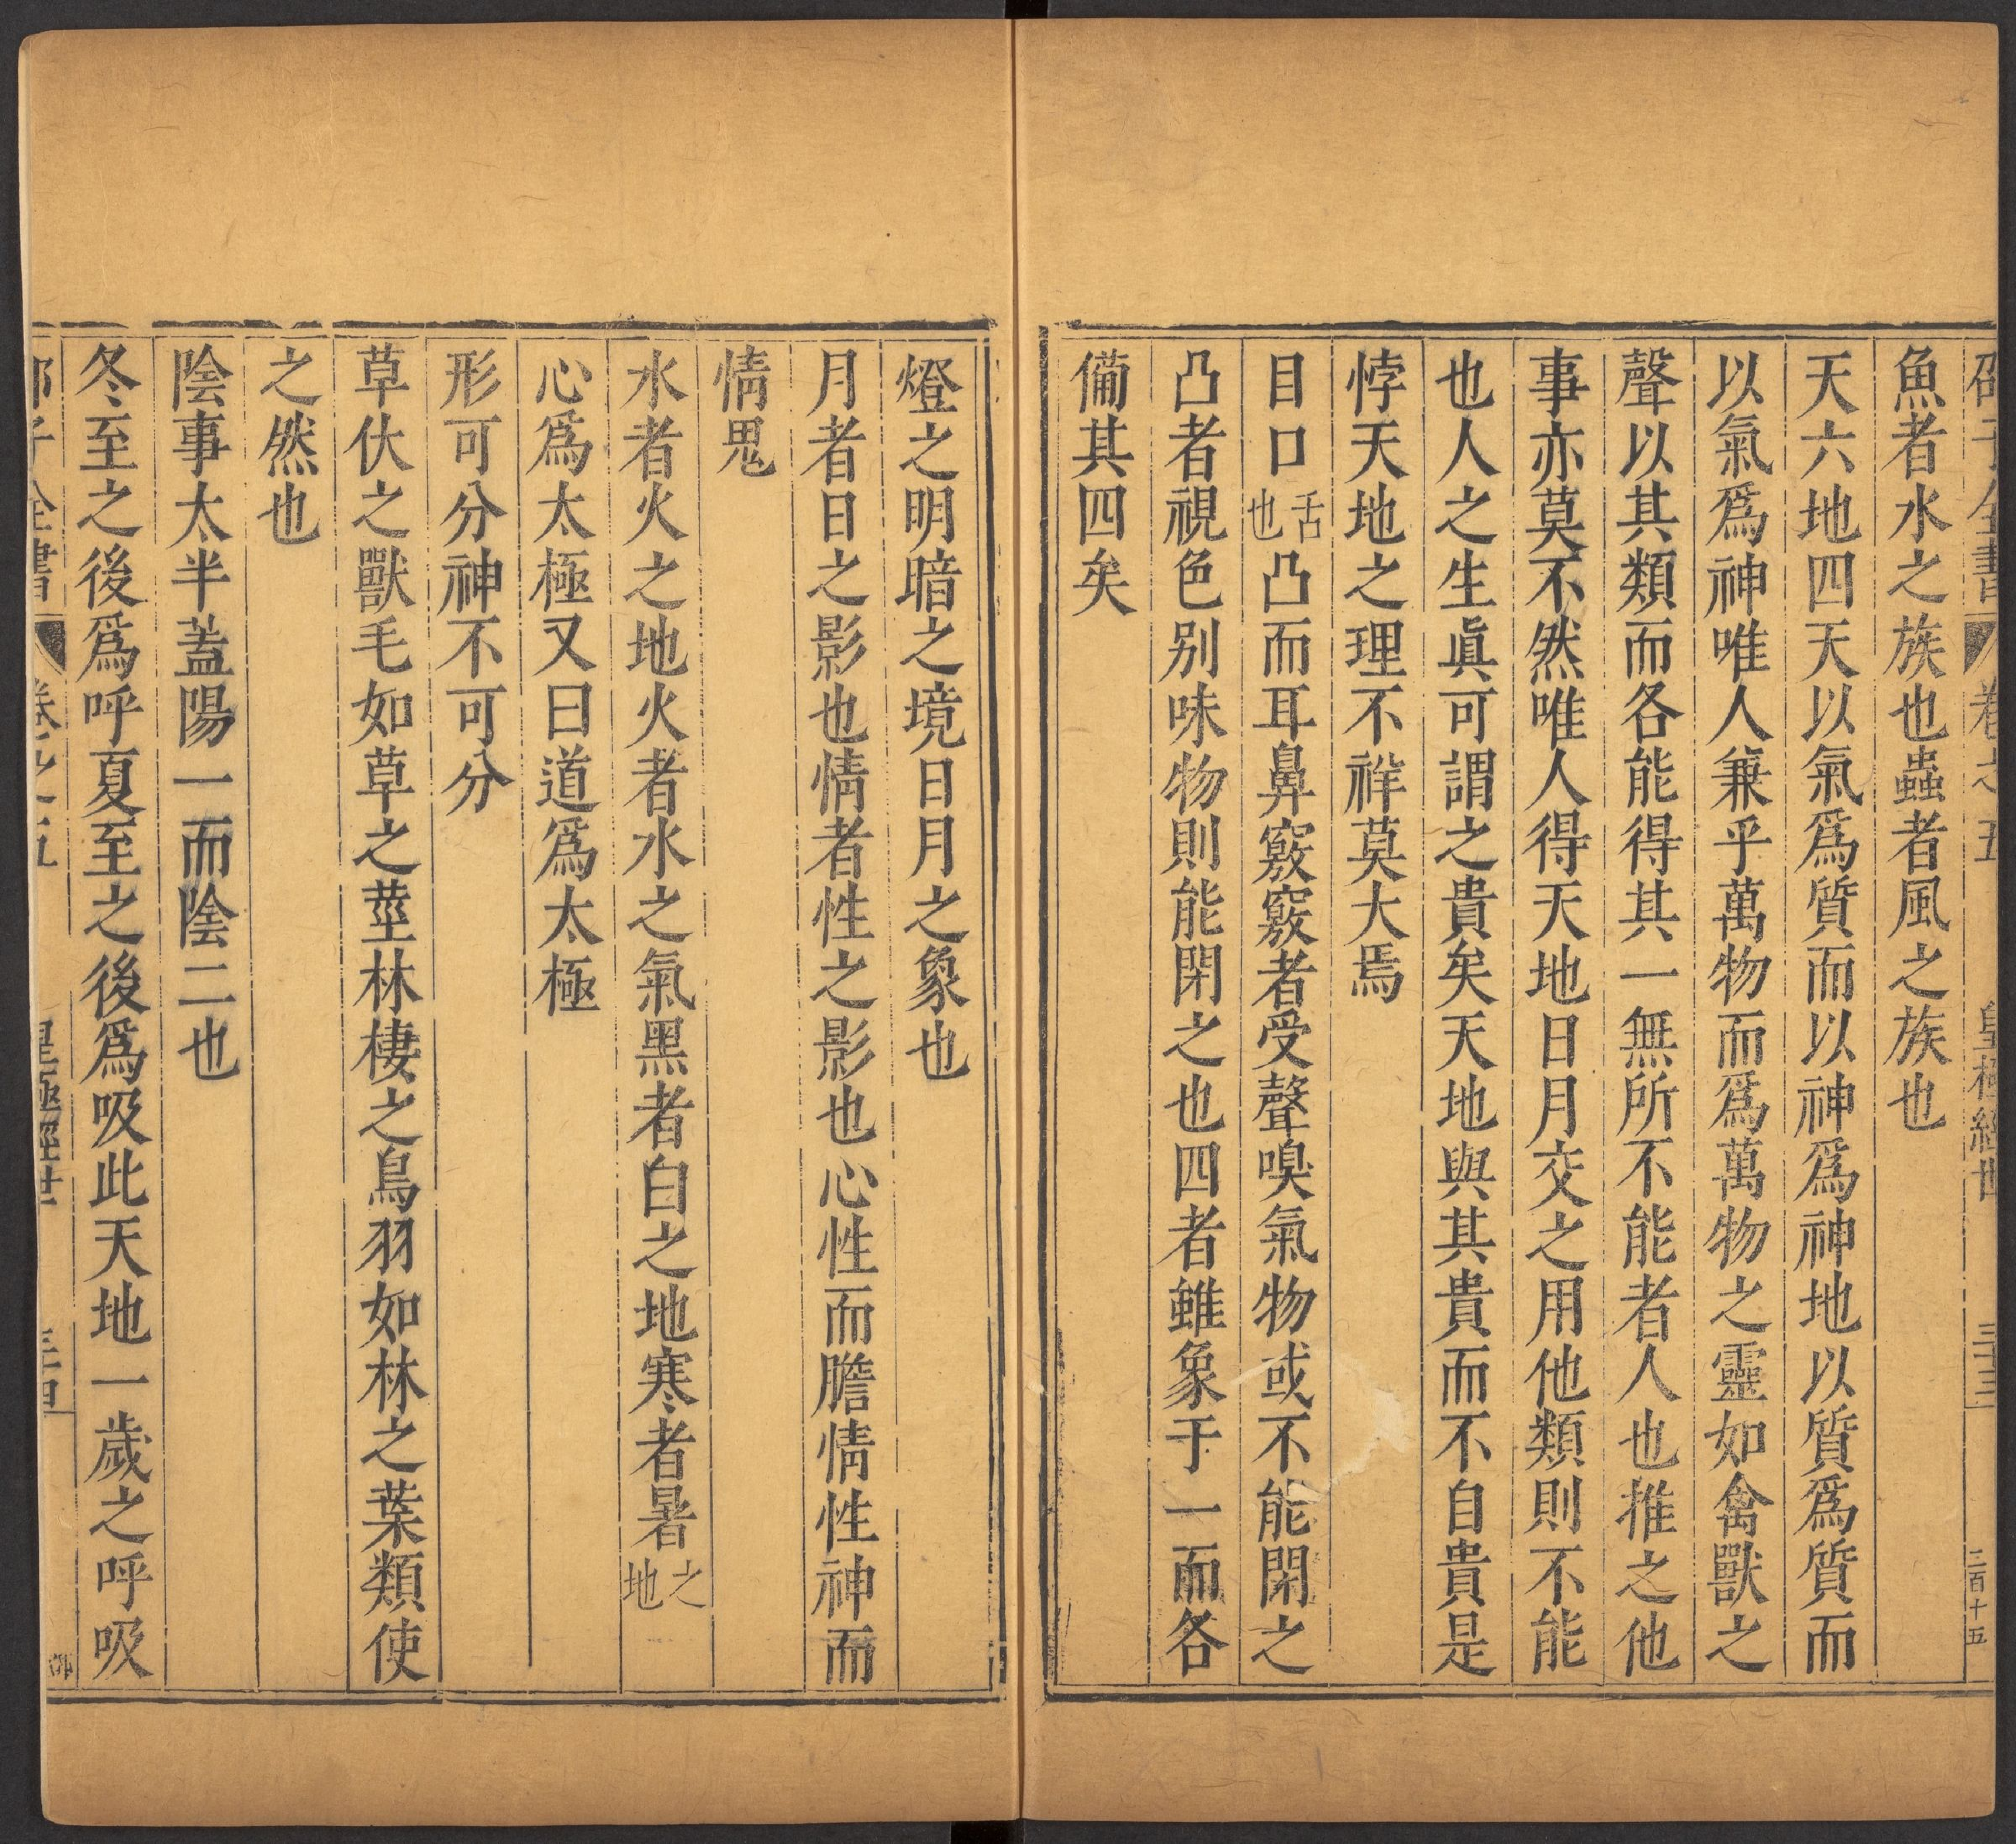 邵子全書 卷之五 皇極經世 三十三 三百十五
魚者水之族也蟲者風之族也
天六地四天以氣爲質而以神爲神地以質爲質而
以氣爲神唯人兼乎萬物而爲萬物之靈如禽獸之
聲以其類而各能得其一無所不能者人也推之他
事亦莫不然唯人得天地日月交之用他類則不能
也人之生眞可謂之貴矣天地與其貴而不自貴是
悖天地之理不祥莫大焉
目口舌也凸而耳鼻竅竅者受聲嗅氣物或不能閉之
凸者視色别味物則能閉之也四者雖象于一而各
備其四矣
燈之明暗之境日月之象也
月者日之影也情者性之影也心性而膽情性神而
情鬼
水者火之地火者水之氣黑者白之地寒者暑之地
心爲太極又曰道爲太極
形可分神不可分
草伏之獸毛如草之莖林棲之鳥羽如林之葉類使
之然也
陰事太半蓋陽一而陰二也
冬至之後爲呼夏至之後爲吸此天地一歲之呼吸
邵子全書 卷之五 皇極經世 三十四